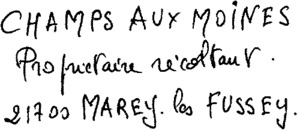 CHAMPS AUX MOINES
Propriétaire récoltant.
21700 MAREY. les FUSSEY.